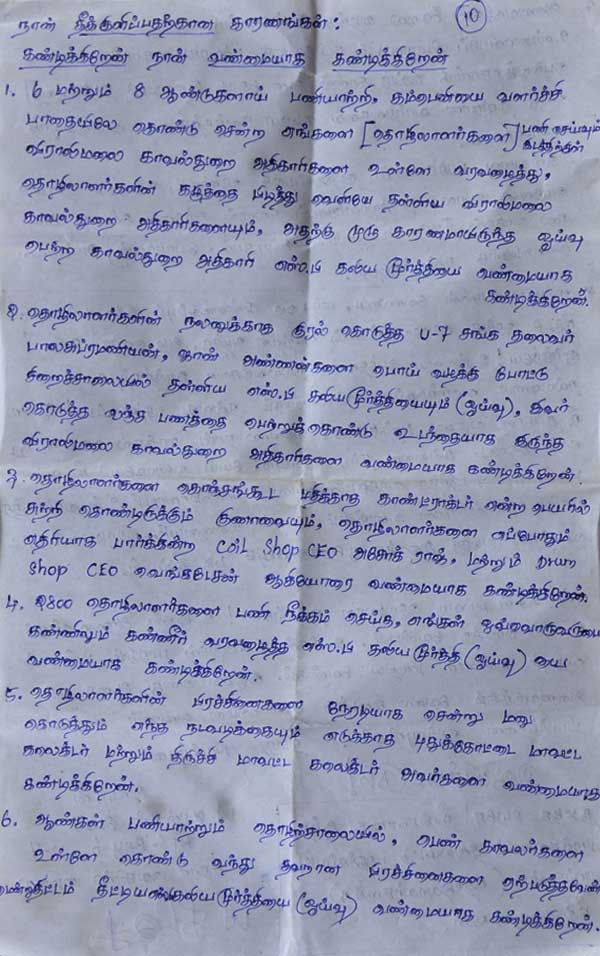 10
நான் தீக்குளிப்பதற்கான காரணங்கள்:
கண்டிக்கிறேன் நான் வண்மையாக கண்டிக்கிறேன்
1. 6 மற்றும் 8 ஆண்டுகளாய் பணியாற்றி, கம்பெனியை வளர்ச்சி
பாதையிலே கொண்டு சென்ற எங்களை [தொழிலாளர்களை] பணி செய்யும் இடத்திற்குள்
விராலிமலை காவல்துறை அதிகாரிகளை உள்ளே வரவழைத்து,
தொழிலாளர்களின் கழுத்தை பிடித்து வெளியே தள்ளிய விராலிமலை
காவல்துறை அதிகாரிகளையும், அதற்கு முழு காரணமாயிருந்த ஓய்வு
பெற்ற காவல்துறை அதிகாரி எஸ்.பி கலிய மூர்த்தியை வண்மையாக
கண்டிக்கிறேன்.
2. தொழிலாளர்களின் நலனுக்காக குரல் கொடுத்த U-7 சங்க தலைவர்
பாலசுப்ரமணியன், நான் அண்ணன்களை பொய் வழக்கு போட்டு
சிறைச்சாலையில் தள்ளிய எஸ்.பி கலியமூர்த்தியையும் (ஓய்வு), இவர்
கொடுத்த லஞ்ச பணத்தை பெற்றுக்கொண்டு உடந்தையாக இருந்த
விராலிமலை காவல்துறை அதிகாரிகளை வண்மையாக கண்டிக்கிறேன்.
3. தொழிலாளர்களை கொஞ்சங்கூட மதிக்காத காண்ட்ராக்டர் என்ற பெயரில்
சுற்றி கொண்டிருக்கும் குணாவையும், தொழிலாளர்களை எப்போதும்
எதிரியாக பார்த்தின்ற Coil Shop CEO அசோக் ராஜ், மற்றும்
Shop CEO வெங்கடேசன் ஆகியோரை வண்மையாக கண்டிக்கிறேன்.
4. 2800 தொழிலாளர்களை பணி நீக்கம் செய்த, எங்கள் ஒவ்வொருவருடைய
கண்ணிலும் கண்ணீர் வரவழைத்த எஸ்.பி கலியமூர்த்தி (ஓய்வு) யை
வண்மையாக கண்டிக்கிறேன்.
5. தொழிலாளர்களின் பிரச்சினைகளை நேரடியாக சென்று மனு
கொடுத்தும் எந்த நடவடிக்கையும் எடுக்காத புதுக்கோட்டை மாவட்ட
கலைக்டர் மற்றும் திருச்சி மாவட்ட கலைக்டர் அவர்களை வண்மையாக
கண்டிக்கிறேன்.
6. ஆண்கள் பணியாற்றும் தொழிற்சாலையில், பெண் காவலர்களை
உள்ளே கொண்டு வந்து தவறான பிரச்சினைகளை ஏற்படுத்தவேண்
டுமென்று திட்டம் தீட்டிய எஸ்.கலியமூர்த்தியை (ஓய்வு) வண்மையாக கண்டிக்கிறேன்.